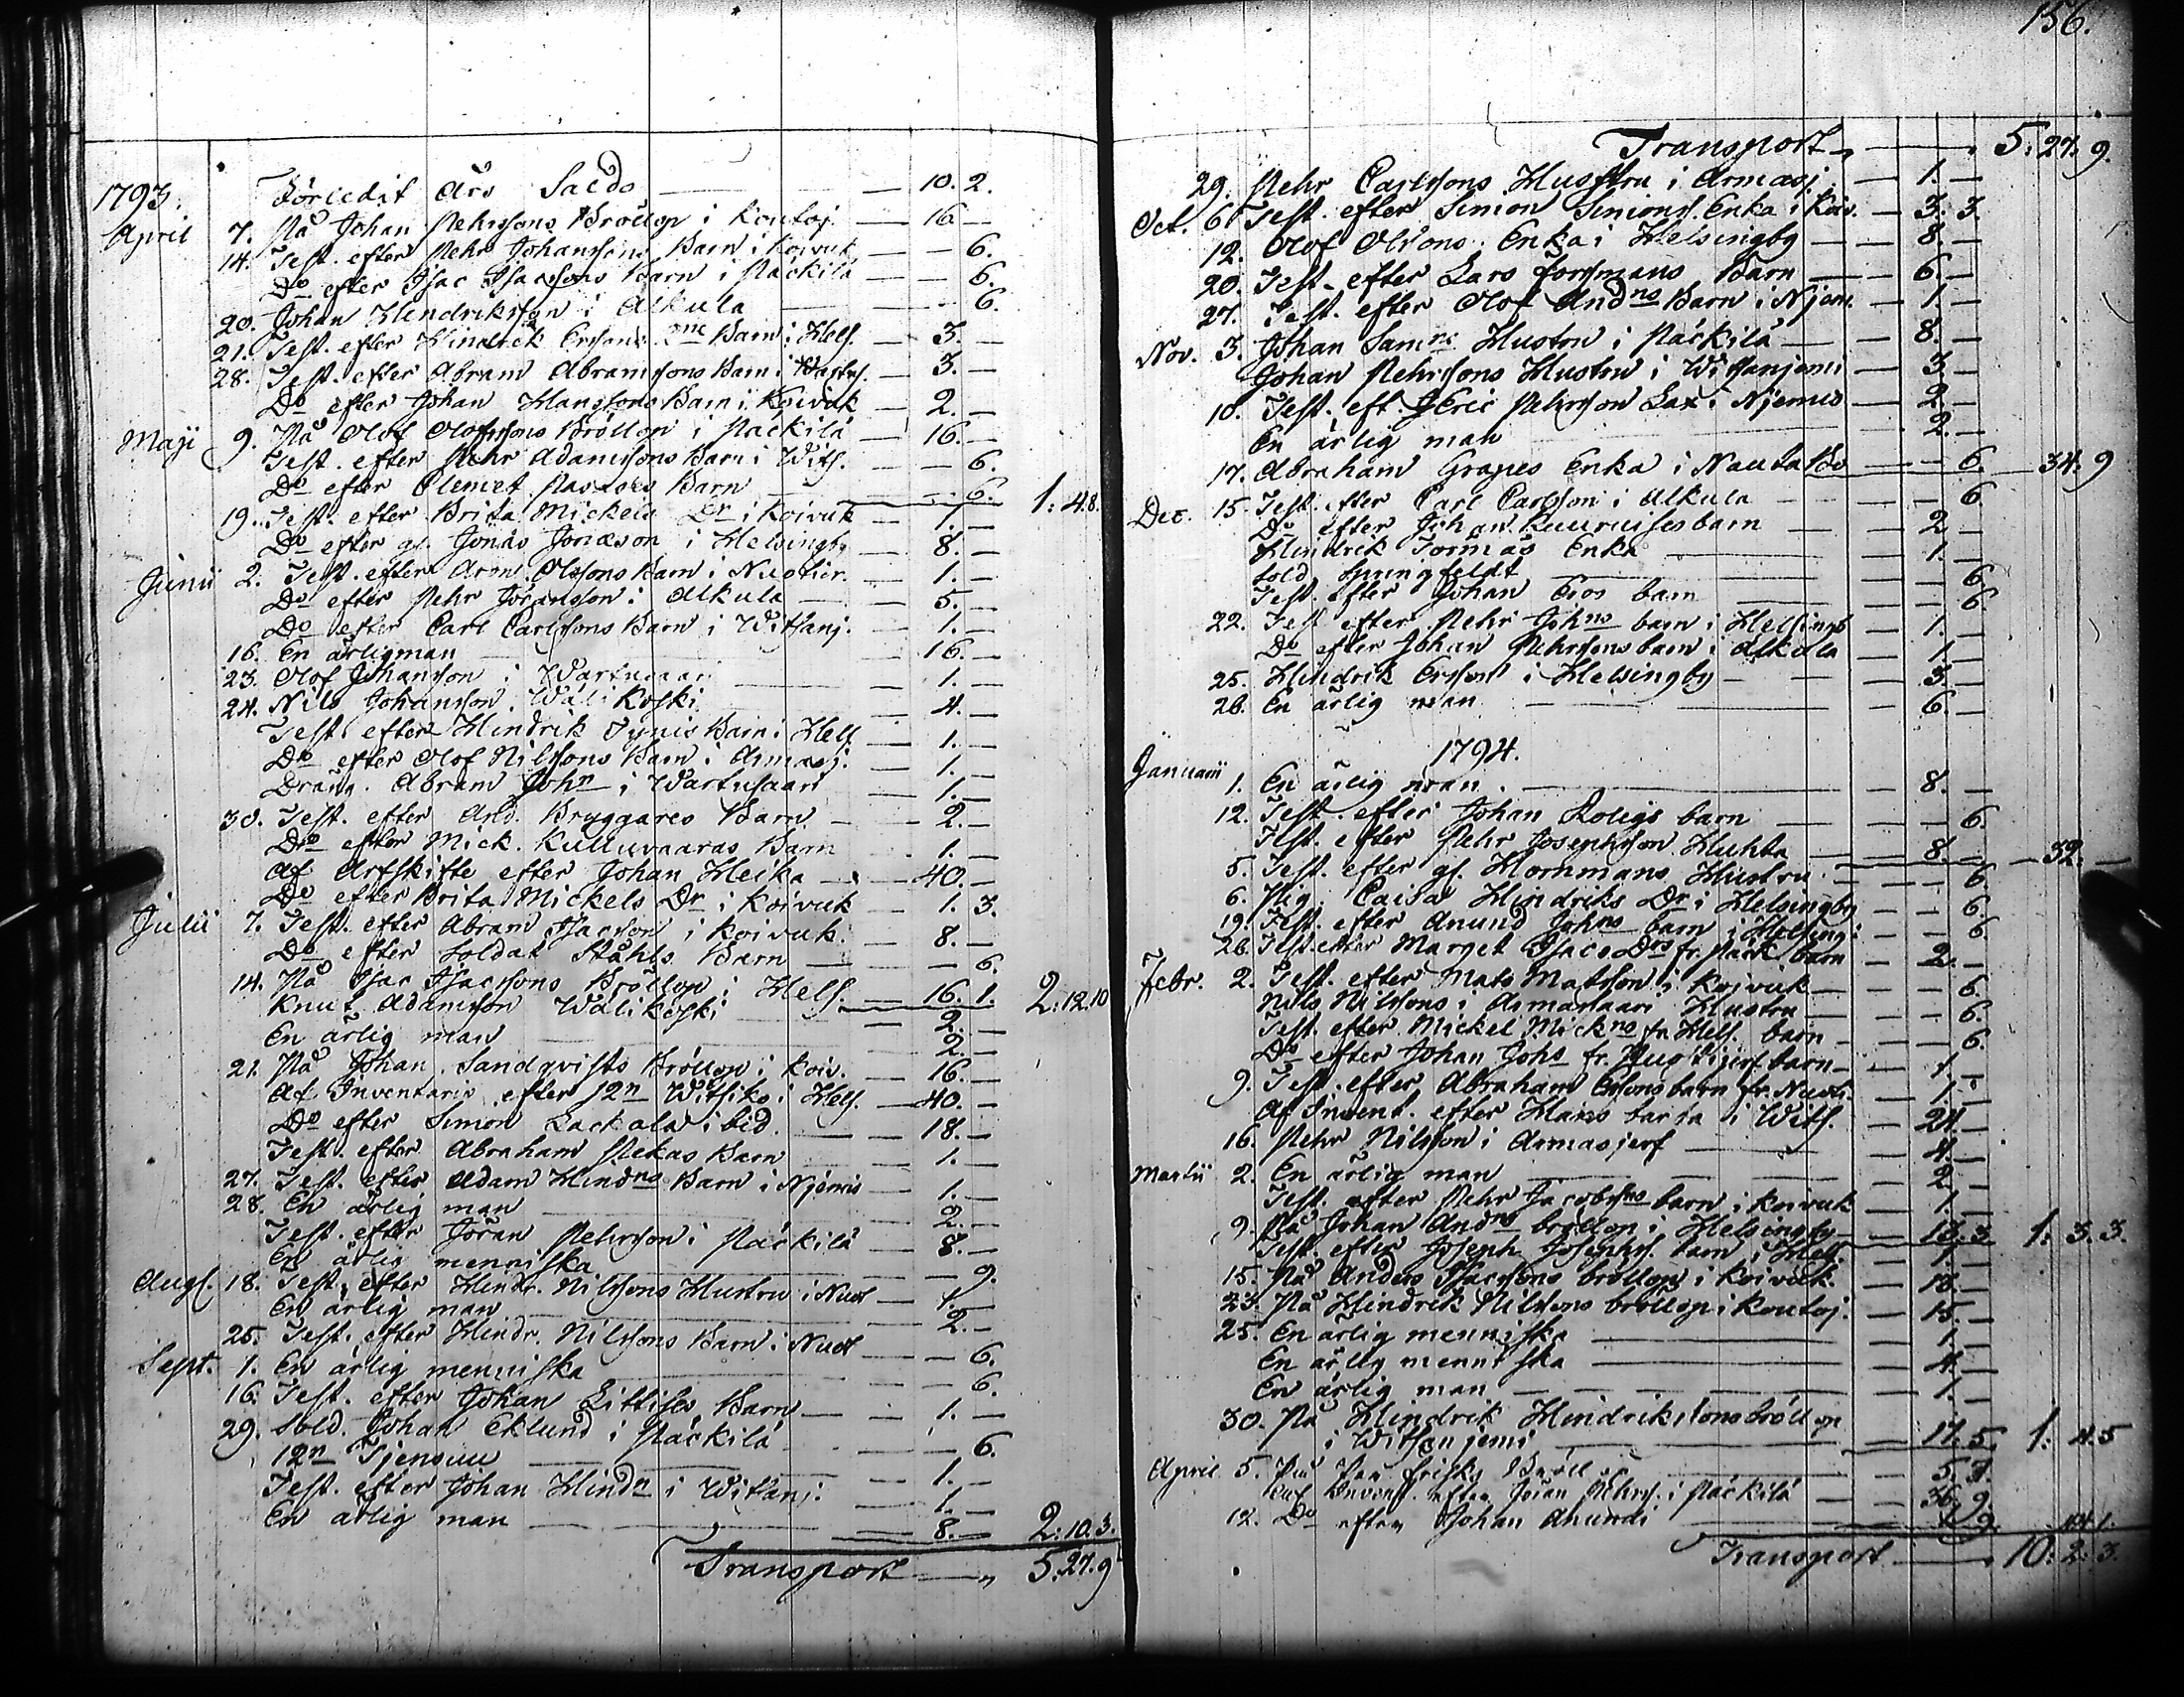 1793. Förledit års Saldo — 10. 2.
April 7. På Johan Pehrssons Bröllop i Koutoj. — 16 —
14. Test. efter Pehr Johanssons Barn i Koivuk — — 6.
Do efter Isac Isacssons Barn i Päckilä — — 6.
20. Johan Hendriksson i Alkula — — 6
21. Test. efter Hindrick Ersons 2ne Barn i Hels. — 3. —
28. Test. efter Abram Abramssons Barn i Wartus. — 3. —
Do efter Johan Hanssons Barn i Koivuk — 2. —
Maji 9. På Olof Olofssons Bröllop i Päckilä — 16. —
Test. efter Pehr Adamssons Barn i Wits. — — 6.
Do efter Clemet Barn — — 6. 1: 4.8.
19. Test. efter Brita Mickels Dr i Koivuk — 1. —
Do efter gl. Jonas Jonæson i Helsingby — 8. —
Junii 2. Test. efter Arm. Olssons Barn i Nuotier. — 1. —
Do efter Pehr Joransson i Alkula — 5. —
Do efter Carl Carlssons Barn i Witsanj. — 1. —
16. En ärligman — 16. —
23. Olof Johansson i Wartusaari — 1. —
24. Nils Johansson Wälikoski — 4. —
Test. efter Hindrik Tynis Barn i Hels. — 1. —
Do efter Olof Nilssons Barn i Armasj. — 1. —
Dräng. Abram John i Wartusaari — 1. —
30. Test. efter And. Bryggares Barn — 2. —
Do efter Mick. Kulluvaaras Barn — 1. —
Af Arfskifte efter Johan Heika — 40. —
Do efter Brita Mickels Dr i Koivuk — 1. 3.
Julii 7. Test. efter Abram Isacsson i Koivuk. — 8. —
Do efter Soldat Ståhls Barn — — 6.
14. På Isac Isacssons Bröllop i Hels. — 16. 1. 2:12.10
Knut Adamsson Wälikoski — 2. —
En ärlig man — 2. —
21. På Johan Sandqvists Bröllop i Koiv. — 16. —
Af Inventarie efter 12n Witsiko i Hels. — 40. —
Do efter Simon Lackala ibid. — 18. —
Test. efter Abraham Pekas Barn — 1. —
27. Test. efter Adam Hindns Barn i Njemis — 1. —
28. En ärlig man — 2. —
Test. efter Joran Pehrsson i Päckilä — 8. —
En ärlig menniska — — 9.
Augs. 18. Test. efter Hindr. Nilssons Hustru i Nuot — 1. —
En ärlig man — 2. —
25. Test. efter Hindr. Nilssons Barn i Nuot — — 6.
Sept. 1. En ärlig menniska — — 6.
16. Test. efter Johan Littises Barn — 1. —
29. Sold. Johan Eklund i Päckilä — — 6.
12n Tjensuu — 1. —
Test. efter Johan Hindn i Witsanj. — 1. —
En ärlig man — 8. — 2: 10. 3.
Transport — 5. 27. 9
156.
Transport — 5: 27. 9.
29. Pehr Carlssons Hustru i Armasj. — 1. —
Oct. 6 Test. efter Simon Simons. Enka i Koiv. — 3. 3.
12. Olof Olssons Enka i Helsingby — 8. —
20. Test. efter Lars Forssmans Barn — 6. —
27. Test. efter Olof Andns Barn i Njem. — 1. —
Nov. 3. Johan Samns Hustru i Päckilä — 8. —
Johan Pehrssons Hustru i Witsanjemi — 3. —
10. Test. eft. Eric Pehrsson Lax i Njemis — 2. —
En ärlig man — 2. —
17. Abraham Grapes Enka i Nautabo — — 6. — 34. 9
Dec. 15. Test. efter Carl Carlsson i Alkula — — 6.
Do efter Johan barn — 2 —
Hindrik Tormäs Enka — 1. —
Sold Springfeldt — — 6.
Test. efter Johan barn — — 6.
22. Test efter Pehr Johns barn i Helsingb — 1. —
Do efter Johan Pehrssons barn i Alkula — 1. —
25. Hindrik Ersson i Helsingby — 3. —
26. En ärlig man — 6. —
1794.
Januarii 1. En ärlig man. — 8. —
12. Test. efter Johan Roligs barn — — 6.
Test. efter Pehr Josephsson Huhta — 8. — 32. —
5. Test. efter gl. Hornmans Hustru — — 6.
6. Pig. Caisa Hindriks Dr i Helsingby — — 6.
19. Test. efter Anund Johns barn i Helsing: — — 6.
26. Test. efter Marget Isacs Drs fr. Päck barn — 2. —
Febr. 2. Test. efter Mats Matsson i Koivuk — — 6.
Nils Nilssons i Armasaari Hustru — — 6.
Test. efter Mickel Mickns fr. Hels. barn — — 6.
Do efter Johan Johs fr. barn — 1. —
9. Test. efter Abraham Ersons barn fr. Nuoti. — 1. —
Af Invent. efter Hans i Wits. — 24. —
16. Pehr Nilsson i Armasjerf — 4. —
Martii 2. En ärlig man — 2. —
Test. efter Pehr Jacobsns barn i Koivuk — 1. —
9. På Johan Andns bröllop i Helsingby — 13. 3 1: 3. 3.
Test. efter Joseph Josephs. barn i Hels — 1. —
15. På Anders Isacssons bröllop i Koivuk. — 18. —
23. På Hindrik Nilssons bröllop i Koutoj. — 15. —
25. En ärlig menniska — 1. —
En ärlig menniska — 4. —
En ärlig man — 1. —
30. På Hindrik Hindrikssons bröllop
i Witsanjemi — 17. 5. 1: 4. 5
April 5. På Frisks Bröll — 5. 7.
Af Invent. efter Joran Pehrs. i Päckilä — 36. 9.
12. Do efter Johan Anundi — 9.
Transport — 10: 2: 3.